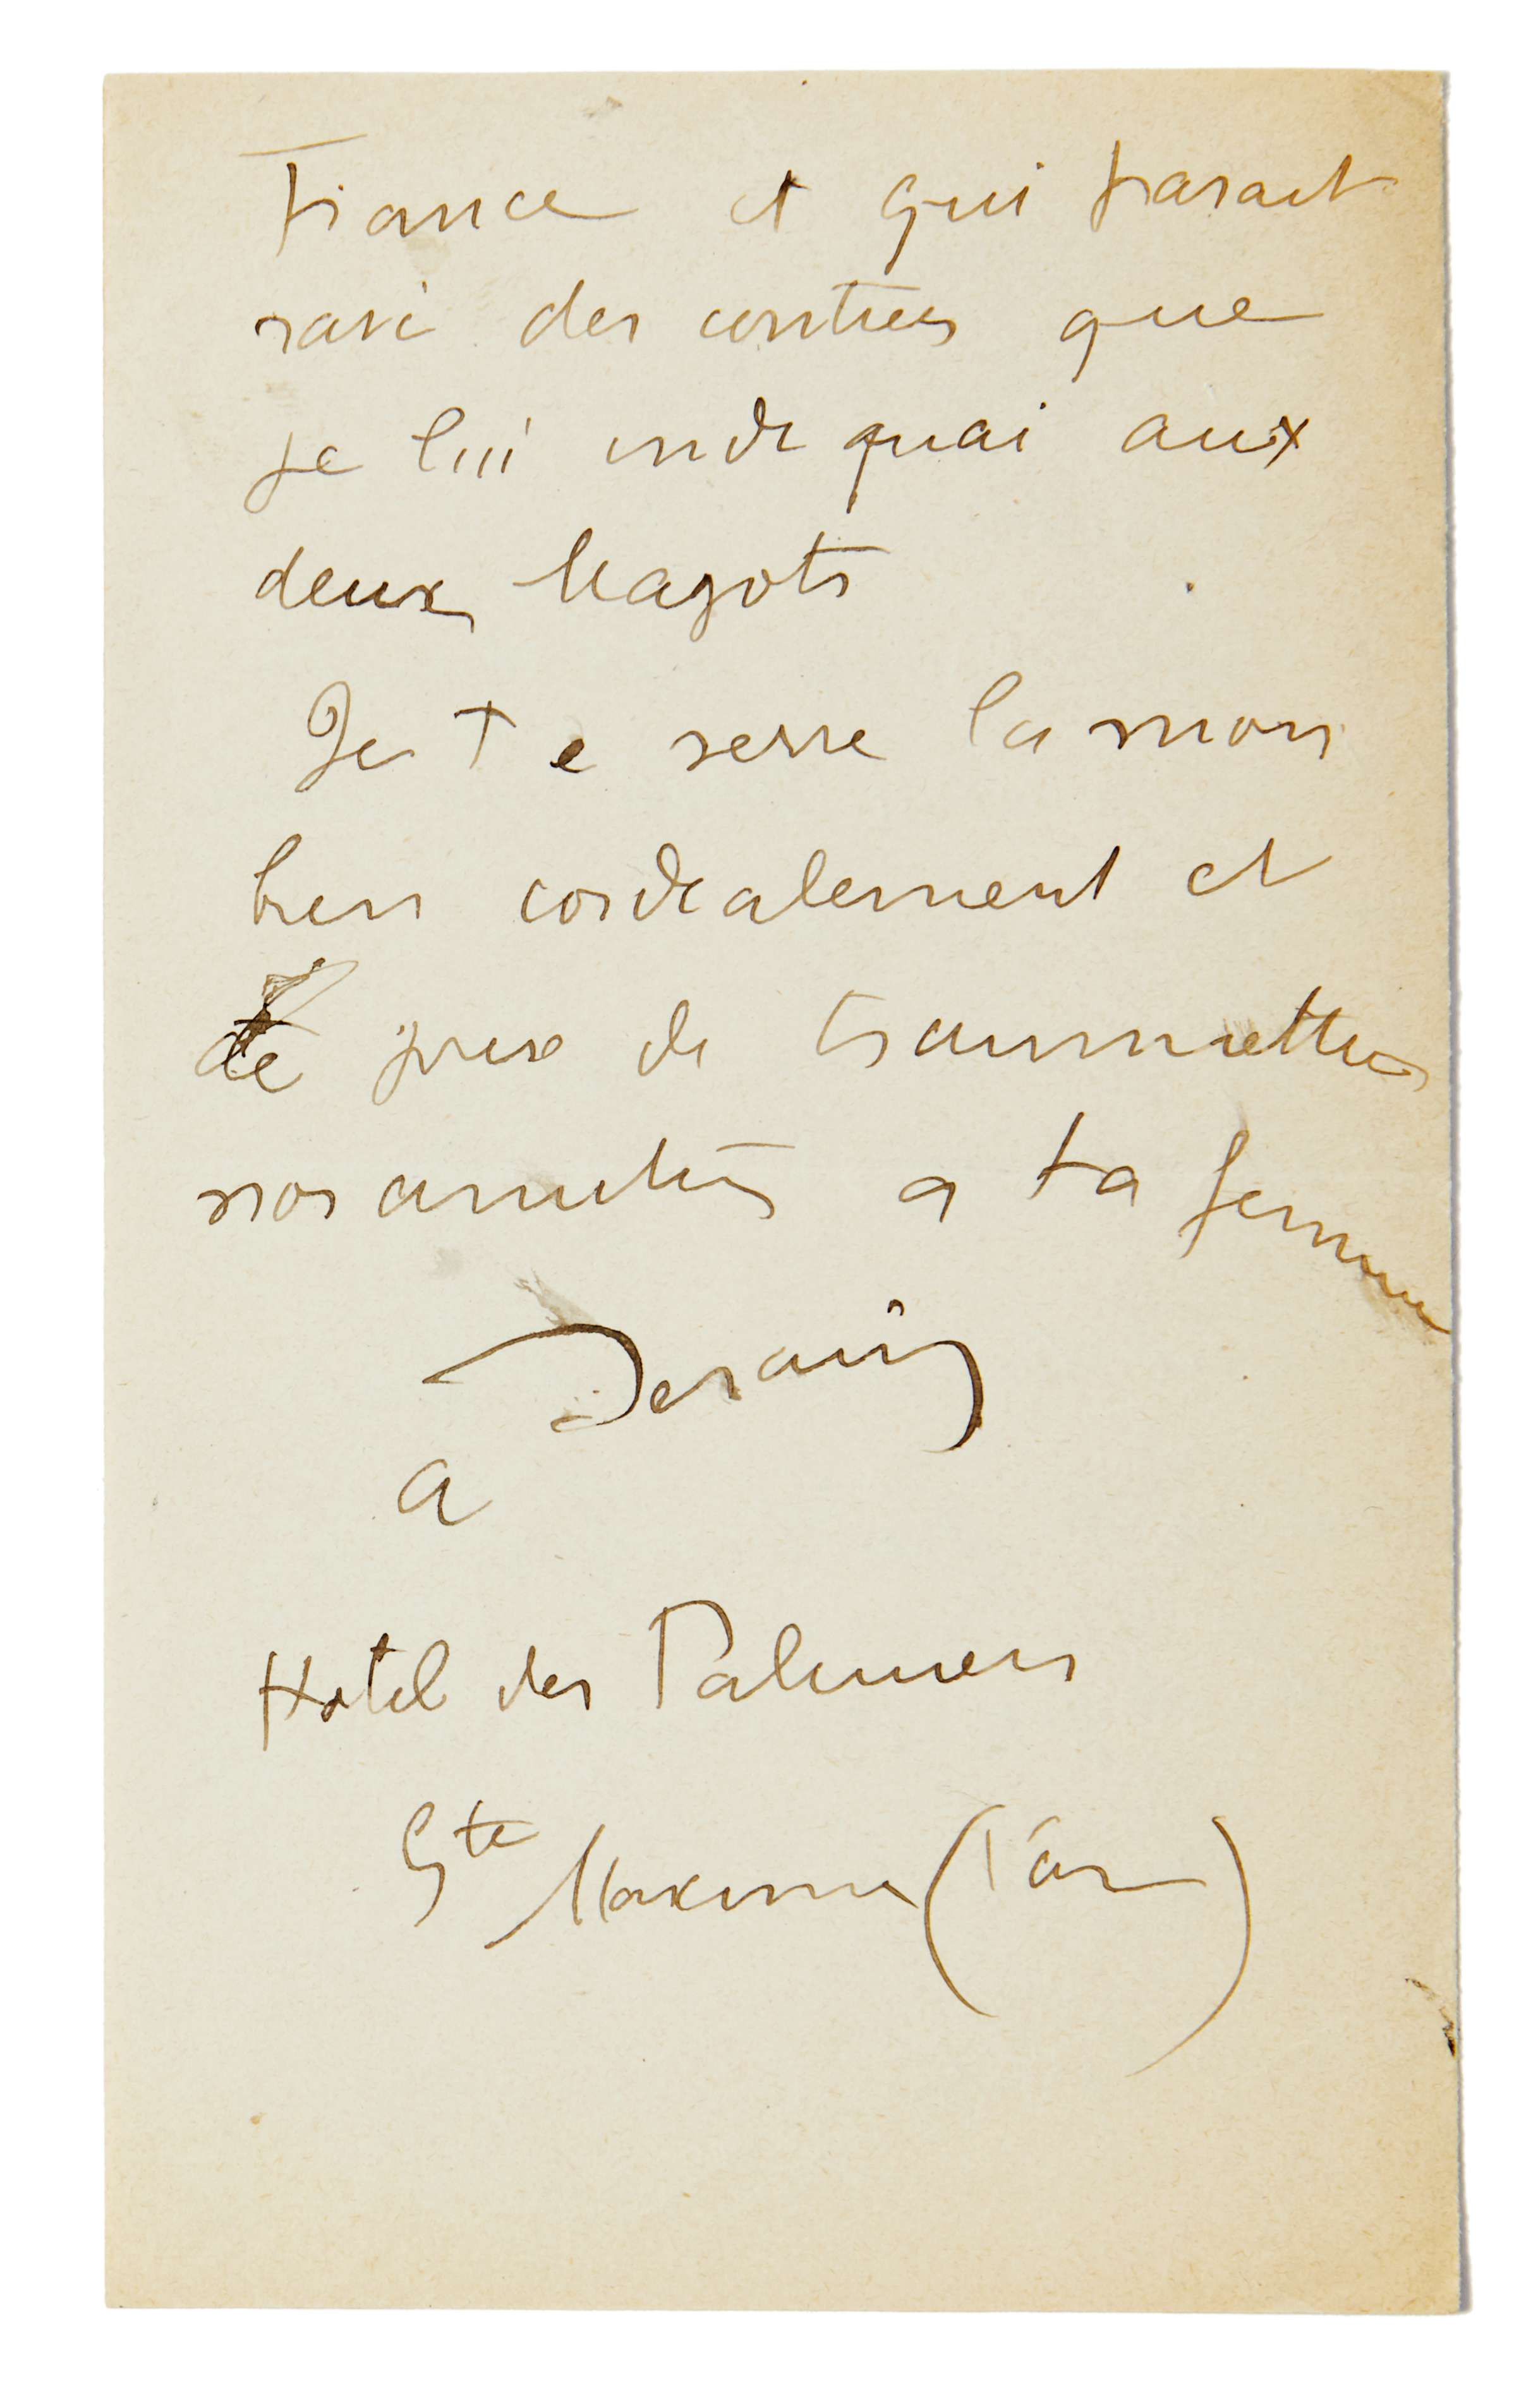 France et qui parait
ravi des contrées que
je lui indiquai aux
deux Magots
Je te serre la main
bien cordialement et
te prie de transmettre
nos amitiés a ta femme
Derain
a
Hotel des Palmiers
Ste Maxime (Var)